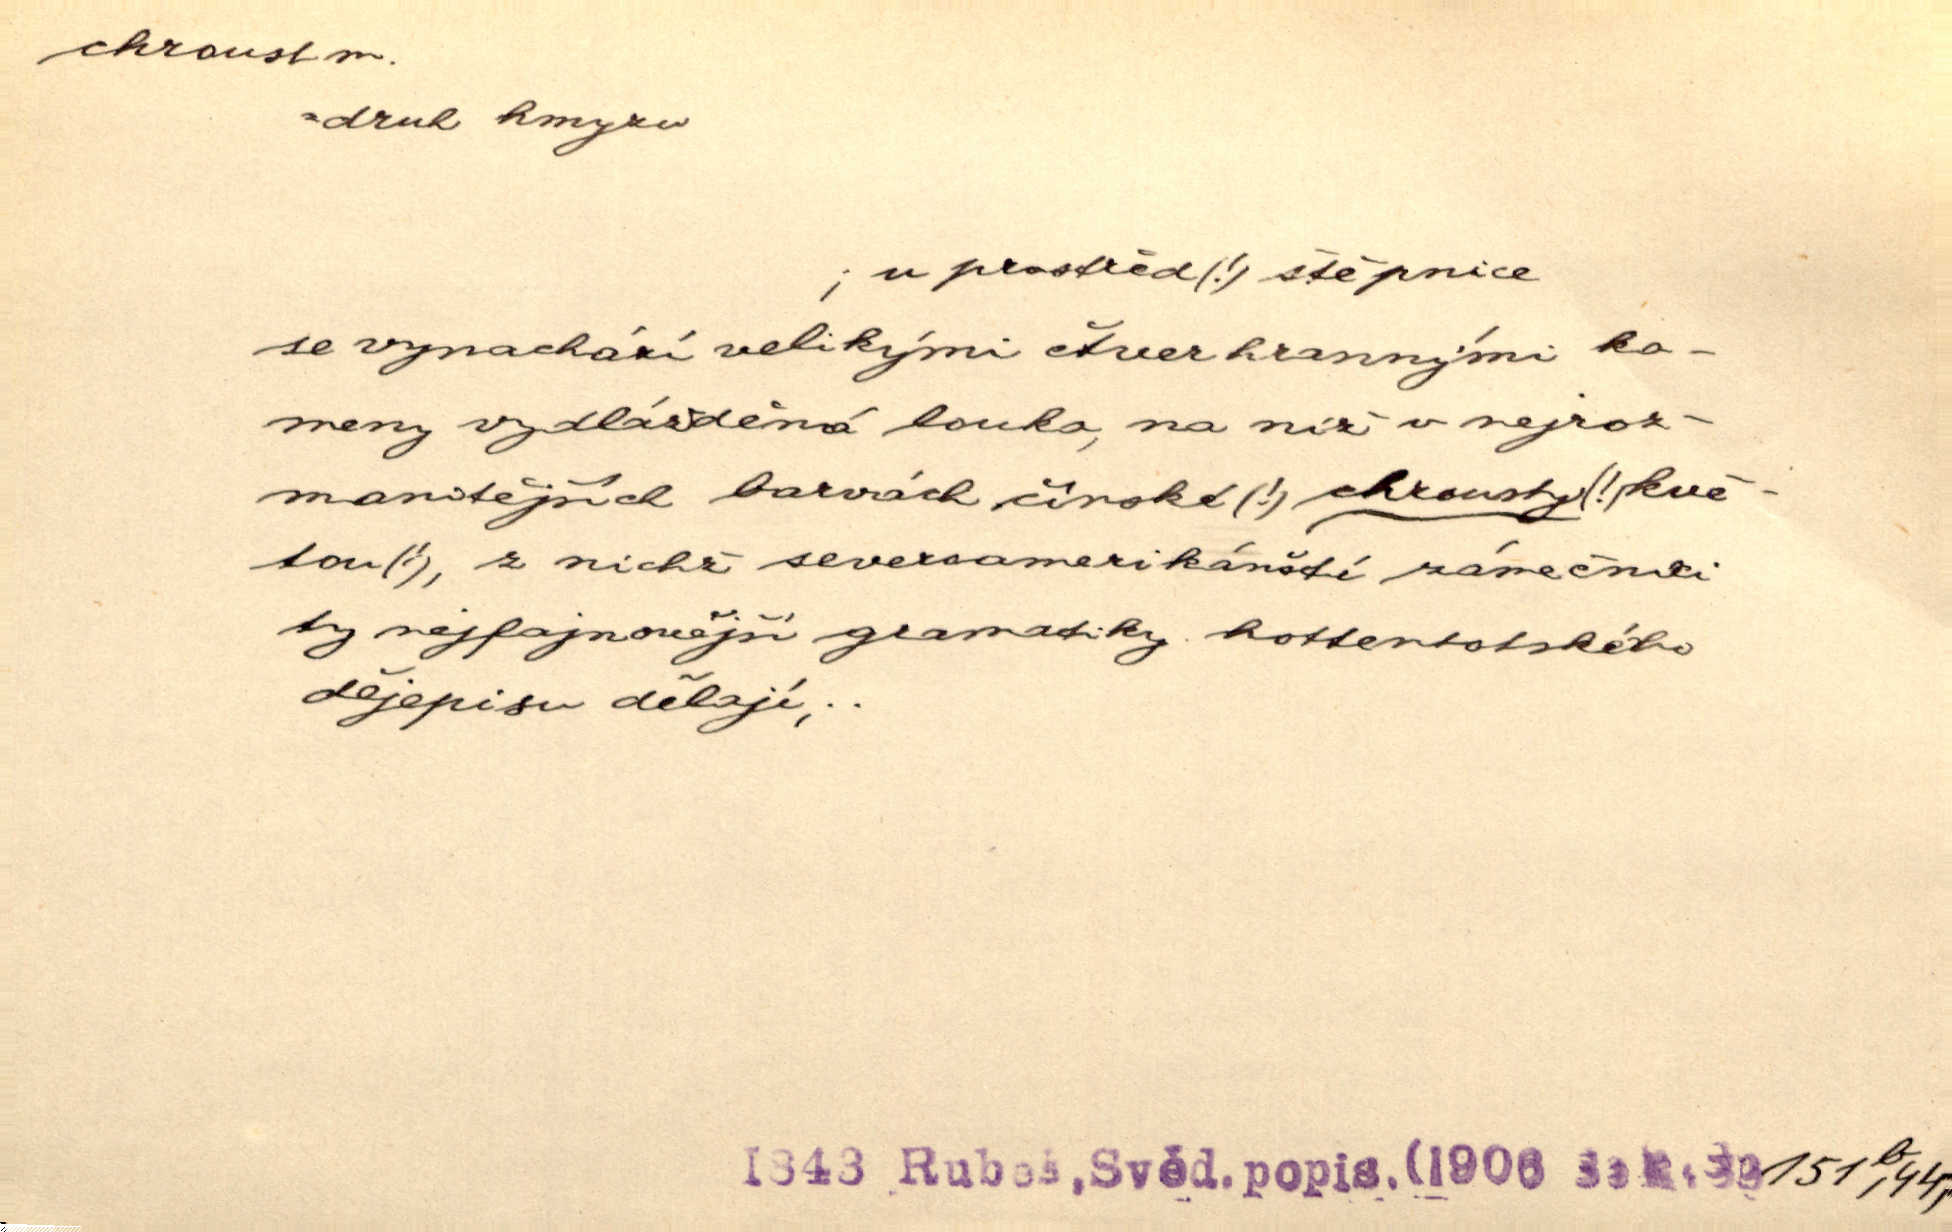 chroust m.
=druh hmyzu
; u prostřed(!) štěpnice
se vynachází velikými čtverhrannými ka-
meny vydlážděná louka, na níž v nejroz-
manitějších barvách čínské(!) chrousty(!) kvě-
tou(!), z nichž severoamerikánští zámečníci
ty nejfajnovější gramatiky hottentotského
dějepisu dělají,..
1843 Rubeš,Svěd.popis.(1906 151 b,44,